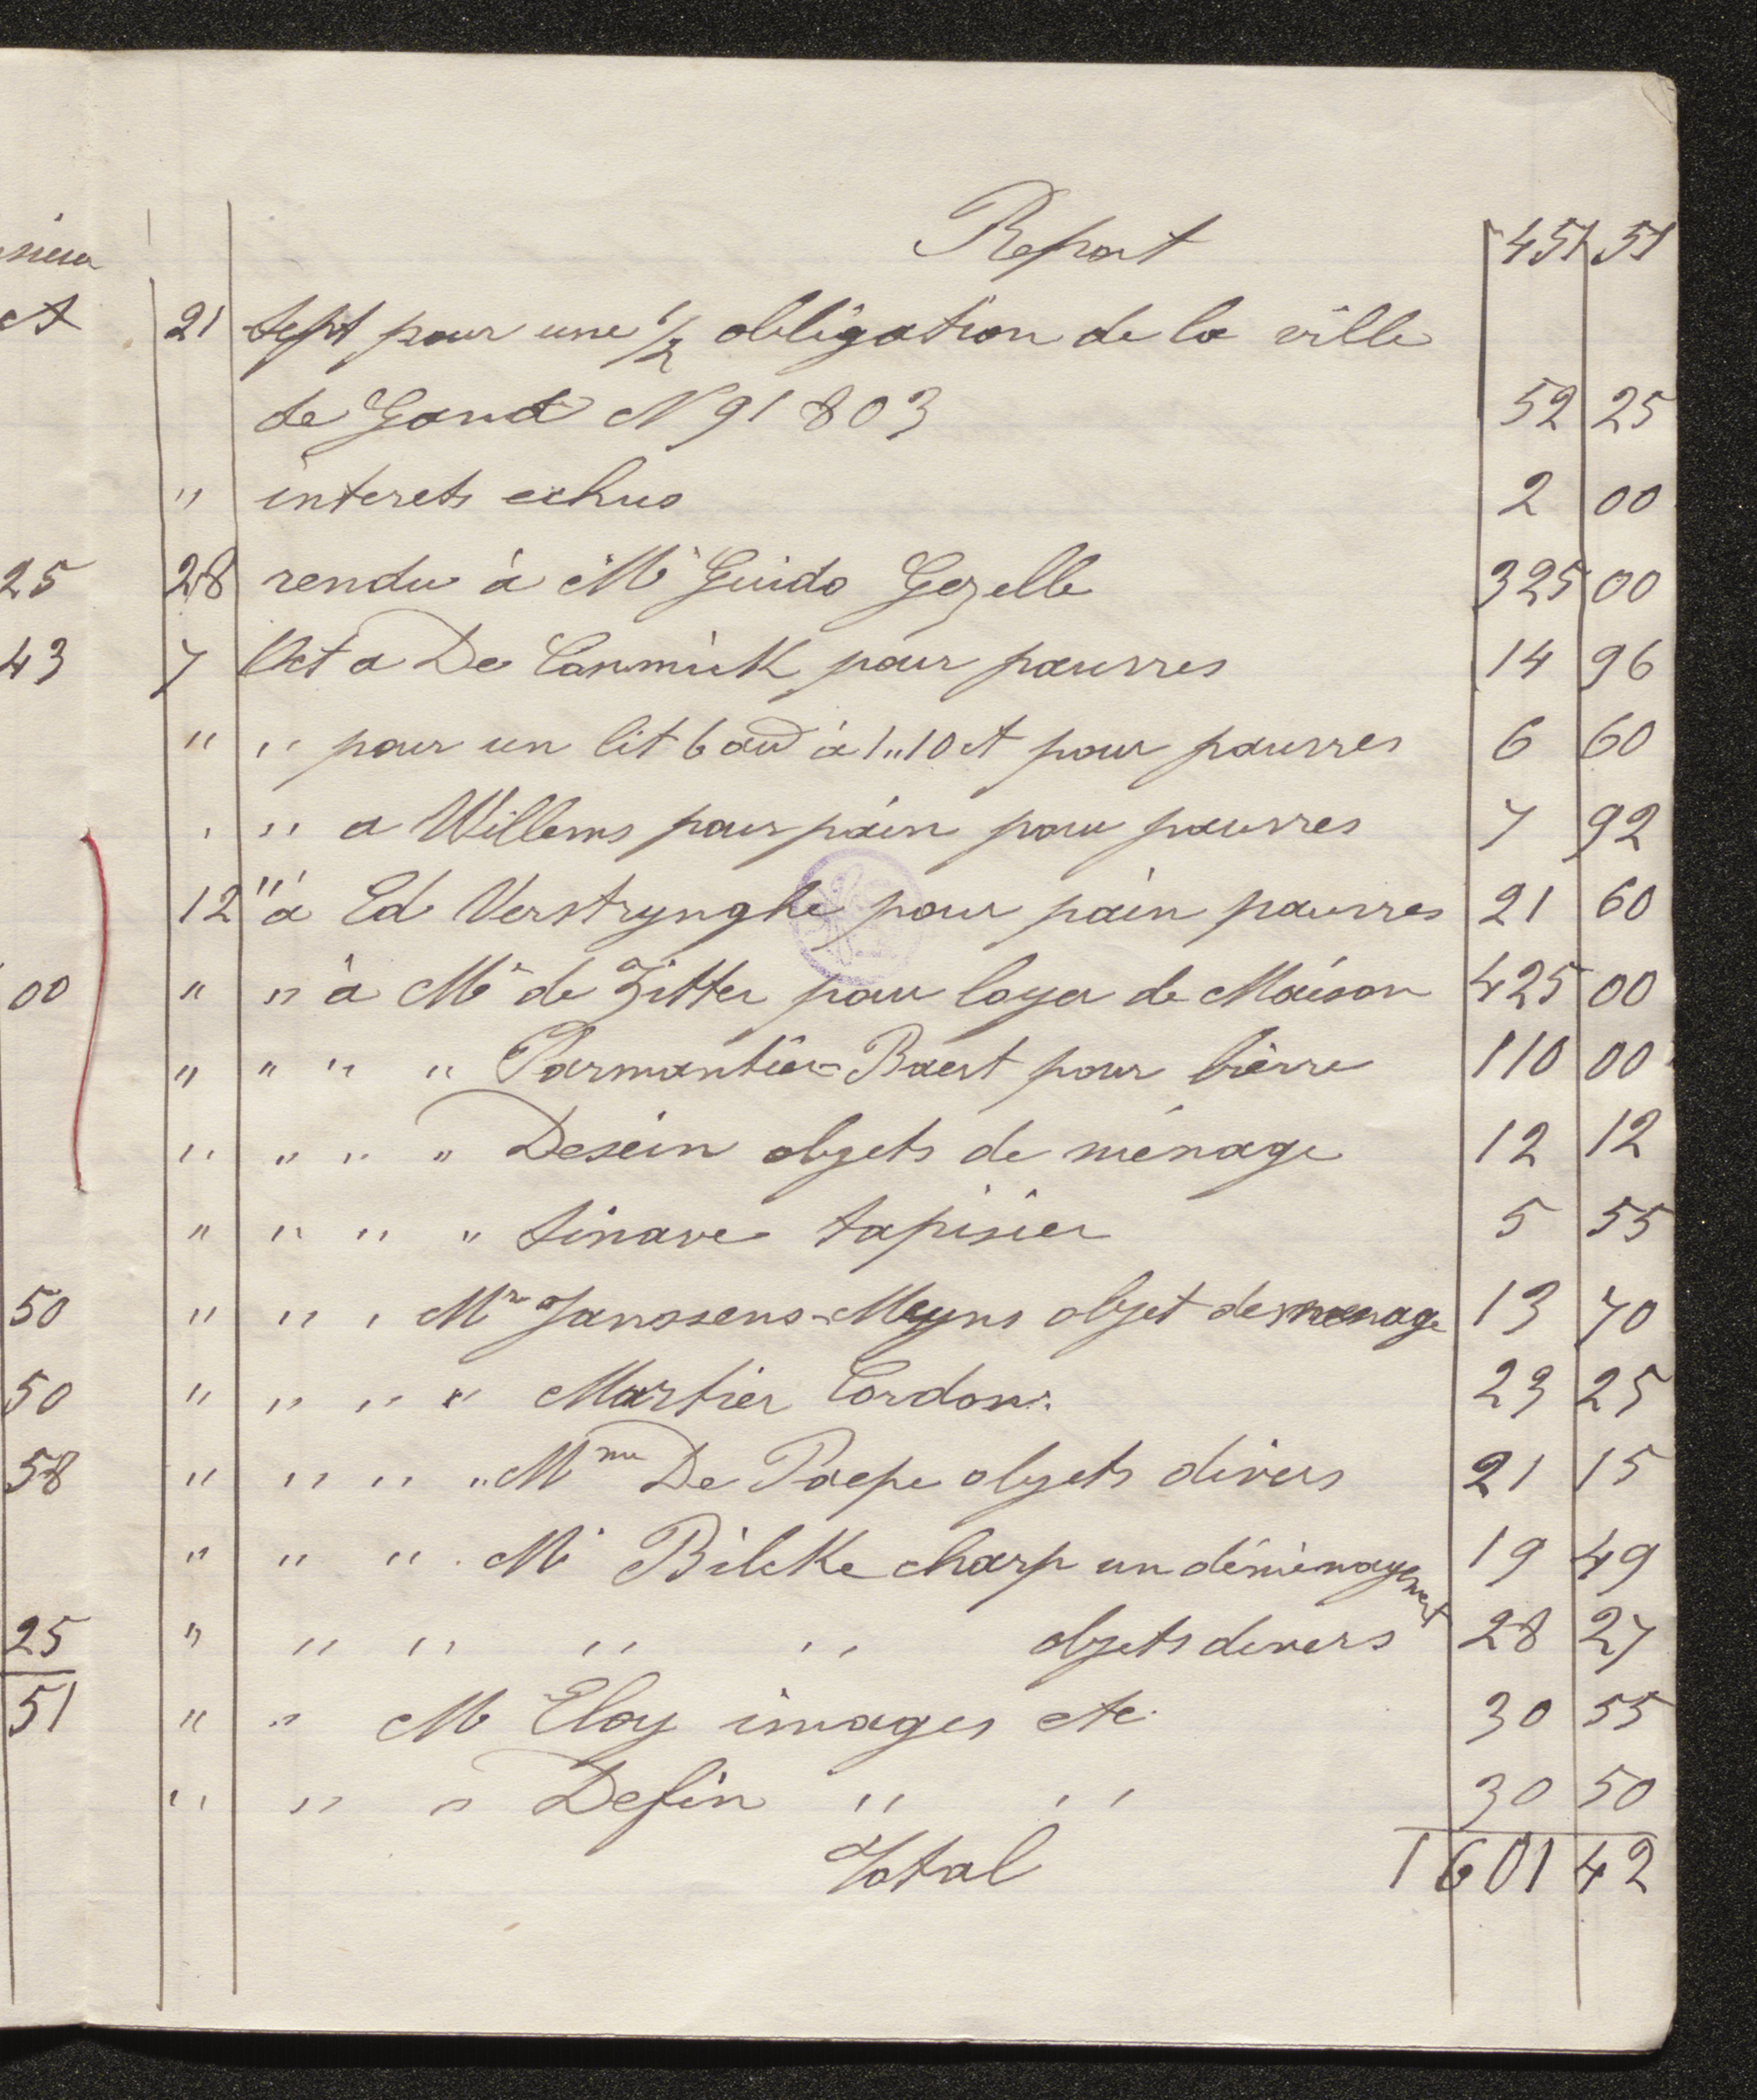 Report 451 51
21 Sept pour une 1/2 obligation de la ville
de Gand N 91803 52 25
" interets echus 2 00
28 rendu à Mr Guido Gezelle 325 00
7 Oct a De Canmick pour pauvres 14 96
" " pour un lit 6 au à 1,,10 ct pour pauvres 6 60
" " a Willems pour pain pour pauvres 7 92
12 " à Ed Verstrynghe pour pain pauvres 21 60
" " à Mr de Zitter pour loyer de Maison 425 00
" " " " Parmantier-Baert pour bièrre 110 00
" " " " Desein objets de ménage 12 12
" " " " Sinave tapisier 5 55
" " " Mr Janssens-Meyns objet de menage 13 70
" " " " Martier Cordon. 23 25
" " " " Mme De Paepe objets divers 21 15
" " " Mr Bilcke charp un déménagement 19 49
" " " " " objets divers 28 27
" " M Eloy images etc. 30 55
" " " Defin " " 30 50
Total 1601 42
25
43
00
50
50
58
25
51